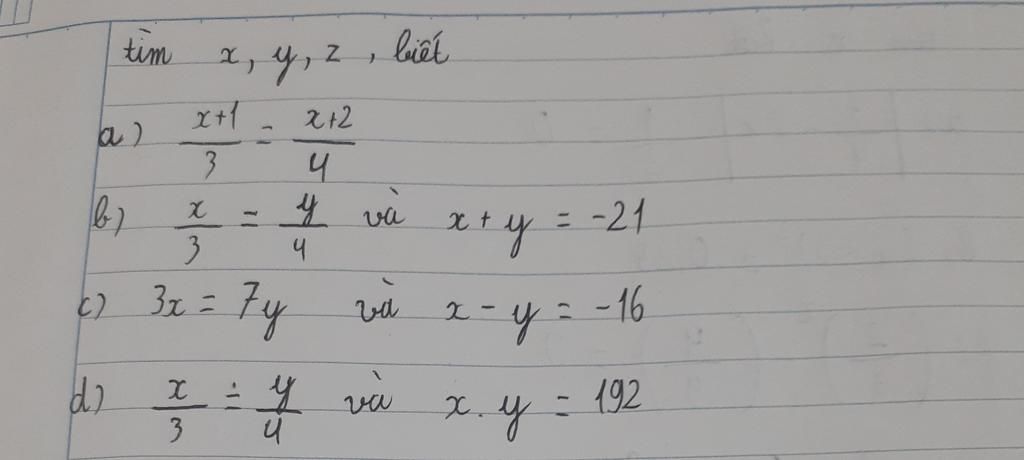 tìm x, y, z, biết
a) x+1/3 = x+2/4
b) x/3 = y/4 và x + y = -21
c) 3x = 7y và x - y = -16
d) x/3 = y/4 và x . y = 192